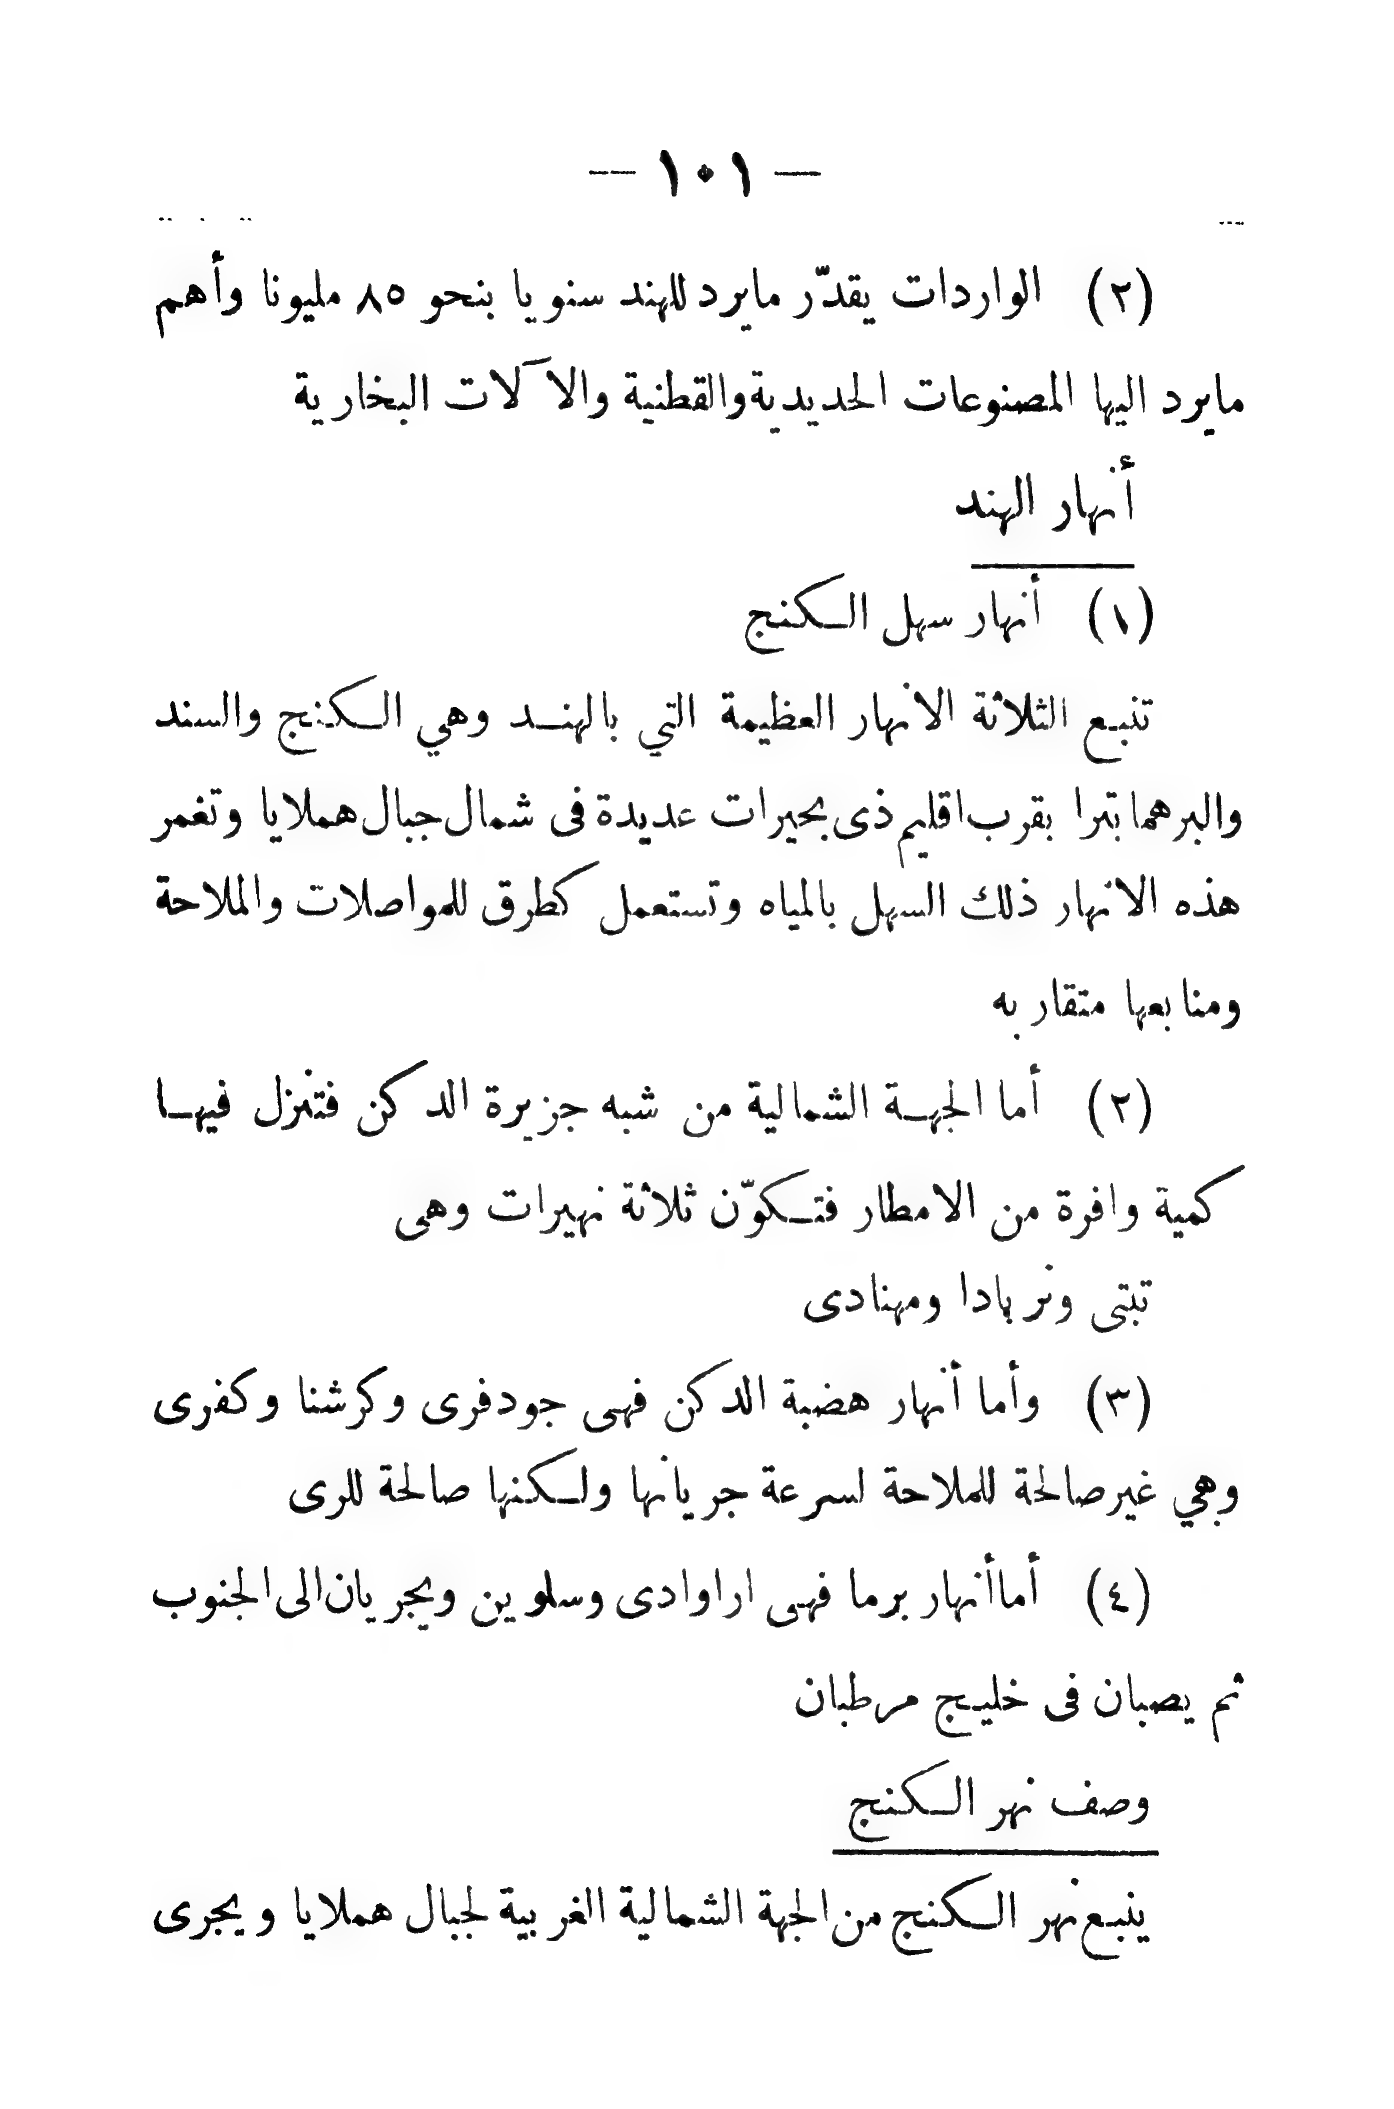 — ١٠١ —
(٢) الواردات يقدّر مايرد للهند سنويا بنحو ٨٥ مليونا وأهم
مايرد اليها المصنوعات الحديدية والقطنية والآلات البخارية
أنهار الهند
(١) أنهار سهل الكنج
تنبع الثلاثة الانهار العظيمة التي بالهند وهي الكنج والسند
والبرهمابترا بقرب اقليم ذى بحيرات عديدة فى شمال جبال هملايا وتغمر
هذه الانهار ذلك السهل بالمياه وتستعمل كطرق للمواصلات والملاحة
ومنابعها متقاربه
(٢) أما الجهة الشمالية من شبه جزيرة الدكن فتنزل فيها
كمية وافرة من الامطار فتكوّن ثلاثة نهيرات وهى
تبتى ونربادا ومهنادى
(٣) وأما أنهار هضبة الدكن فهى جودفرى وكرشنا وكفرى
وهي غير صالحة للملاحة لسرعة جريانها ولكنها صالحة للرى
(٤) أما أنهار برما فهى اراوادى وسلوين ويجريان الى الجنوب
ثم يصبان فى خليج مرطبان
وصف نهر الكنج
ينبع نهر الكنج من الجهة الشمالية الغربية لجبال هملايا ويجرى